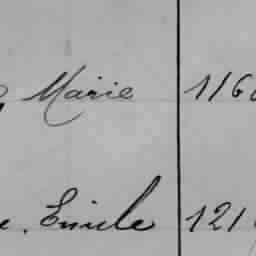 Marie 116
Emile 121